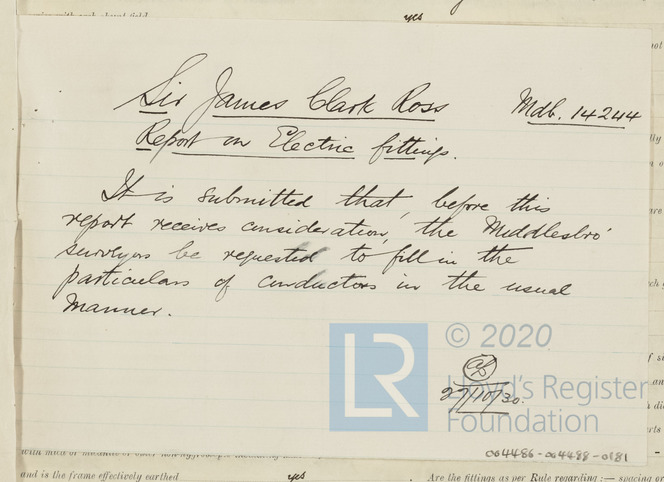 yes
Sir James Clark Ross Mdb. 14244
Report on Electric fittings.
It is submitted that, before this
report receives consideration, the Middlesbro'
surveyors be requested to fill in the
particulars of conductors in the usual
manner.
LR © 2020
Lloyd's Register
Foundation
27/10/30.
004486-004488-0181
and is the frame effectively earthed yes Are the fittings as per Rule regarding :— spacing or